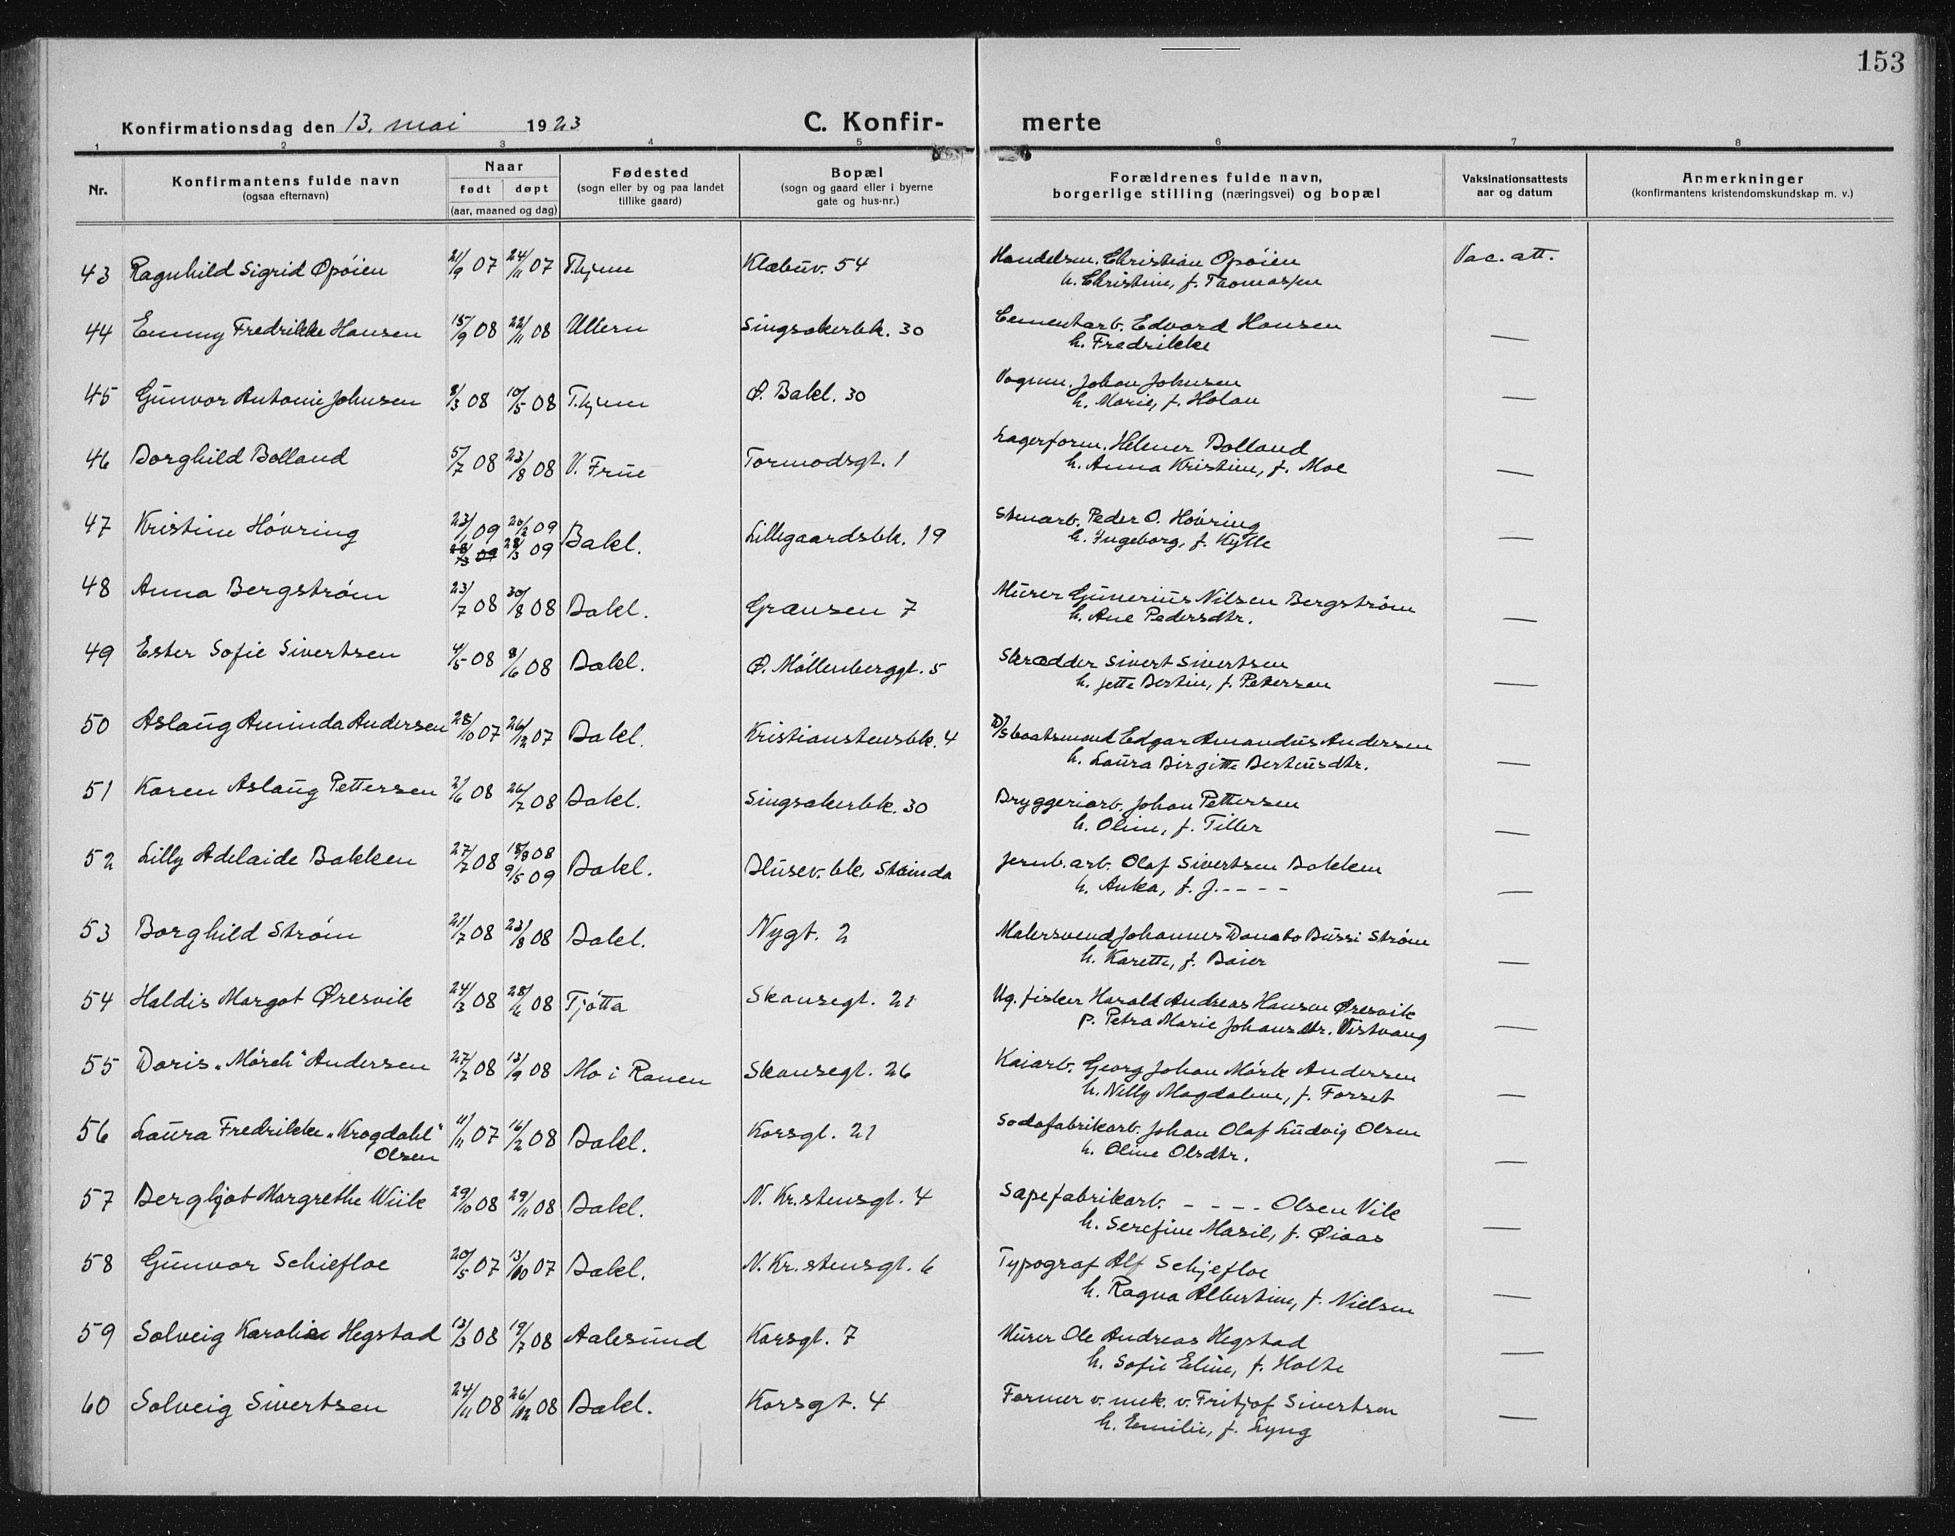 153
Konfirmationsdag den 13. mai 1923 C. Konfir- merte
1 2 3 4 5 6 7 8
Nr. Konfirmantens fulde navn (ogsaa efternavn) Naar født døpt (aar, maaned og dag) Fødested (sogn eller by og paa landet tillike gaard) Bopæl (sogn og gaard eller i byerne gate og hus-nr.) Forældrenes fulde navn, borgerlige stilling (næringsvei) og bopæl Vaksinationsattests aar og datum Anmerkninger (konfirmantens kristendomskundskap m. v.)
43 Ragnhild Sigrid Opöien 21/9 07 24/11 07 T.hjem Klæbuv. 54 Handelsm. Christian Opöien Vac. att.
h. Christine, f. Thomassen
44 Emmy Fredrikke Hansen 15/9 08 22/11 08 Ullern Singsakerbk. 30 Cementarb. Edvard Hansen —
h. Fredrikke
45 Gunvor Antonie Johnsen 8/3 08 10/5 08 T.hjem Ø. Bakl. 30 Vognm. Johan Johnsen —
h. Marie, f. Holan
46 Borghild Bolland 5/7 08 23/8 08 V. Frue Tormodsgt. 1 Lagerform. Helmer Bolland —
h. Anna Kristine, f. Moe
47 Kristine Hövring 23/1 09 20/2 09 Bakl. Lillegaardsbk. 19 Stenarb. Peder O. Hövring —
28/3 09 28/3 09 h. Ingeborg, f. Kylle
48 Anna Bergström 23/7 08 30/8 08 Bakl. Grænsen 7 Murer Gunerius Nilsen Bergström —
h. Ane Pedersdtr.
49 Ester Sofie Sivertsen 4/5 08 8/6 08 Bakl. Ø. Möllenberggt. 5 Skrædder Sivert Sivertsen —
h. Jette Bertine, f. Petersen
50 Aslaug Aminda Andersen 28/10 07 26/12 07 Bakl. Kristianstensbk. 4 D/S baatsmand Edgar Amandus Andersen —
h. Laura Birgitte Berteusdtr.
51 Karen Aslaug Pettersen 2/6 08 26/7 08 Bakl. Singsakerbk. 30 Bryggeriarb. Johan Pettersen —
h. Oline, f. Tiller
52 Lilly Adelaide Bakken 27/7 08 18/8 08 9/5 09 Bakl. Blusev. bk. Strinda Jernb. arb. Olaf Sivertsen Bakken —
h. Anka, f. J. - - - -
53 Borghild Ström 21/7 08 23/8 08 Bakl. Nygt. 2 Malersvend Johannes Donato Bussi Ström —
h. Karette, f. Baier
54 Haldis Margot Øresvik 24/3 08 28/6 08 Tjötta Skansegt. 21 Ug. fisker Harald Andreas Hansen Øresvik —
p. Petra Marie Johansdtr. Vistvang
55 Doris "Mörch" Andersen 27/7 08 13/9 08 Mo i Ranen Skansegt. 26 Kaiarb. Georg Johan Mörk Andersen —
h. Nilly Magdalene, f. Forset
56 Laura Fredrikke "Krogdahl" Olsen 11/11 07 16/2 08 Bakl. Korsgt. 21 Sodafabrikarb. Johan Olaf Ludvig Olsen —
h. Oline Olsdtr.
57 Bergljot Margrethe Wiik 29/10 08 29/11 08 Bakl. N. Kr.stensgt. 4 Sapefabrikarb. - - - - Olsen Vik —
h. Serefine Masil, f. Øiaas
58 Gunvor Schiefloe 20/5 07 13/10 07 Bakl. N. Kr.stensgt. 6 Typograf Alf Schjefloe —
h. Ragna Albertine, f. Nielsen
59 Solveig Karoline Hegstad 13/3 08 19/7 08 Aalesund Korsgt. 7 Murer Ole Andreas Hegstad —
h. Sofie Eline, f. Holte
60 Solveig Sivertsen 24/11 08 26/12 08 Bakl. Korsgt. 4 Former v. mek. v. Fritjof Sivertsen —
h. Emilie, f. Lyng